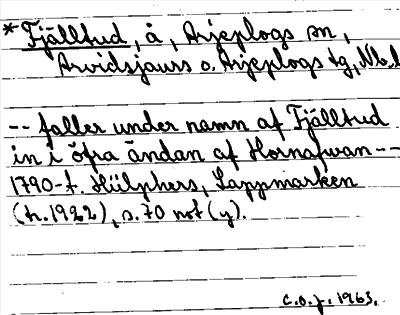 *Fjälltud, å, Arjeplogs sn,
Arvidsjaurs o. Arjeplogs tg, Nb.l
-- faller under namn af Fjälltud
in i öfra ändan af Hornafvan --
1790-t. Hülphers, Lappmarken
(tr. 1922), s. 70 not (y).
C.O.J. 1963.